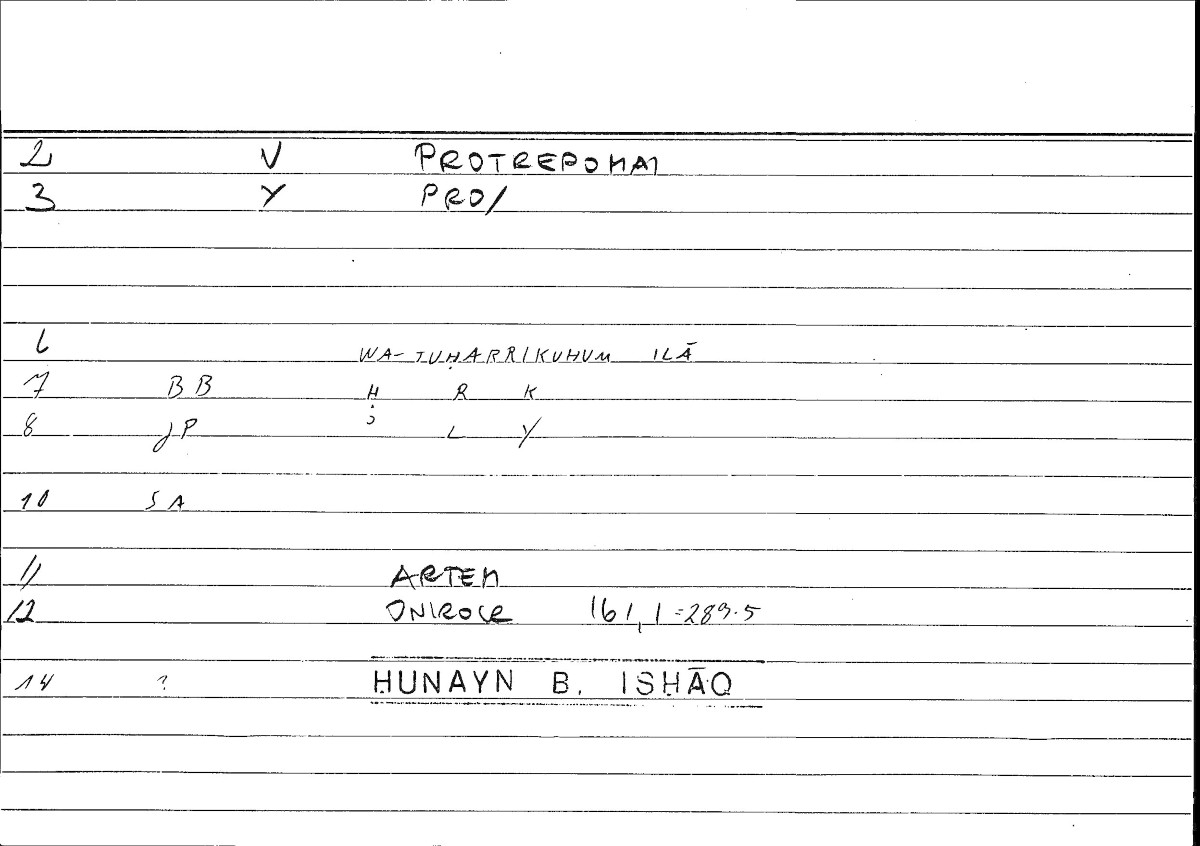 2 V PROTREPOMAI
3 Y PRO/
6 WA-TUḤARRIKUHUM ILĀ
7 BB Ḥ R K
8 JP ʾ L Y
10 SA
11 ARTEM
12 ONIROCR 161,1=289.5
14 ? ḤUNAYN B. ISḤĀQ